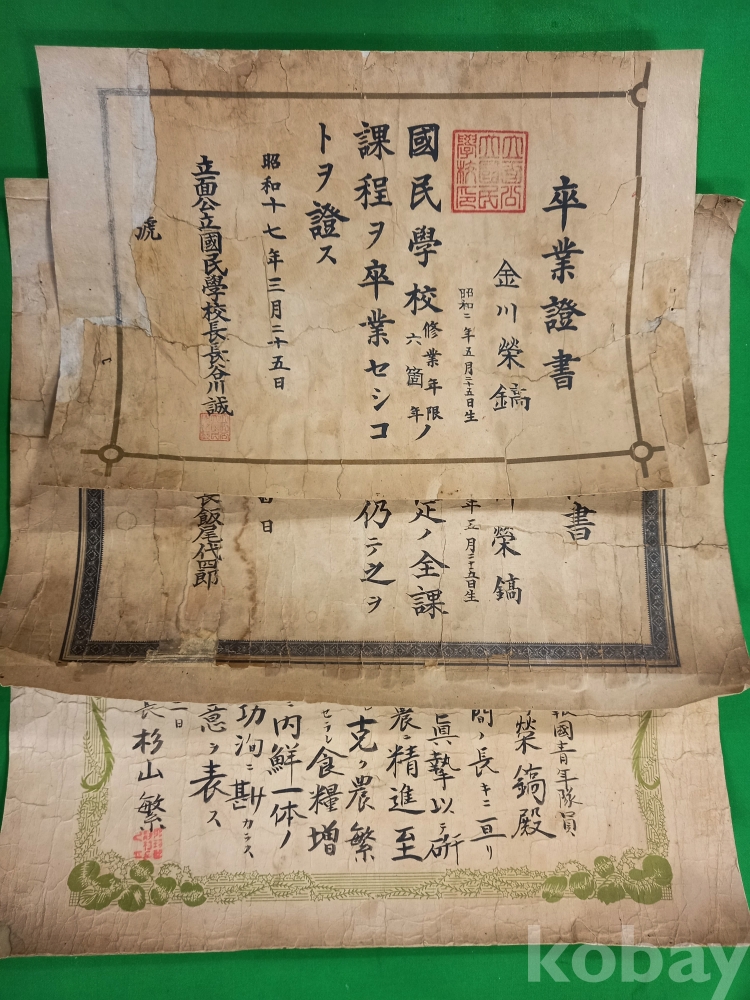 卒業證書
金川榮鎬
昭和二年五月二十五日生
國民學校修業年限六箇年ノ
課程ヲ卒業セシコ
トヲ證ス
昭和十七年三月二十五日
立面公立國民學校長長谷川誠
號
書
川榮鎬
年五月二十五日生
定ノ全課
仍テ之ヲ
日
長飯尾代四郎
報國青年隊員
榮鎬殿
間ノ長キニ亘リ
眞摯以テ研
農ニ精進至
克ク農繁
セラレ食糧增
内鮮一体ノ
功洵ニ尠カラス
意ヲ表ス
二日
長杉山繁
kobay